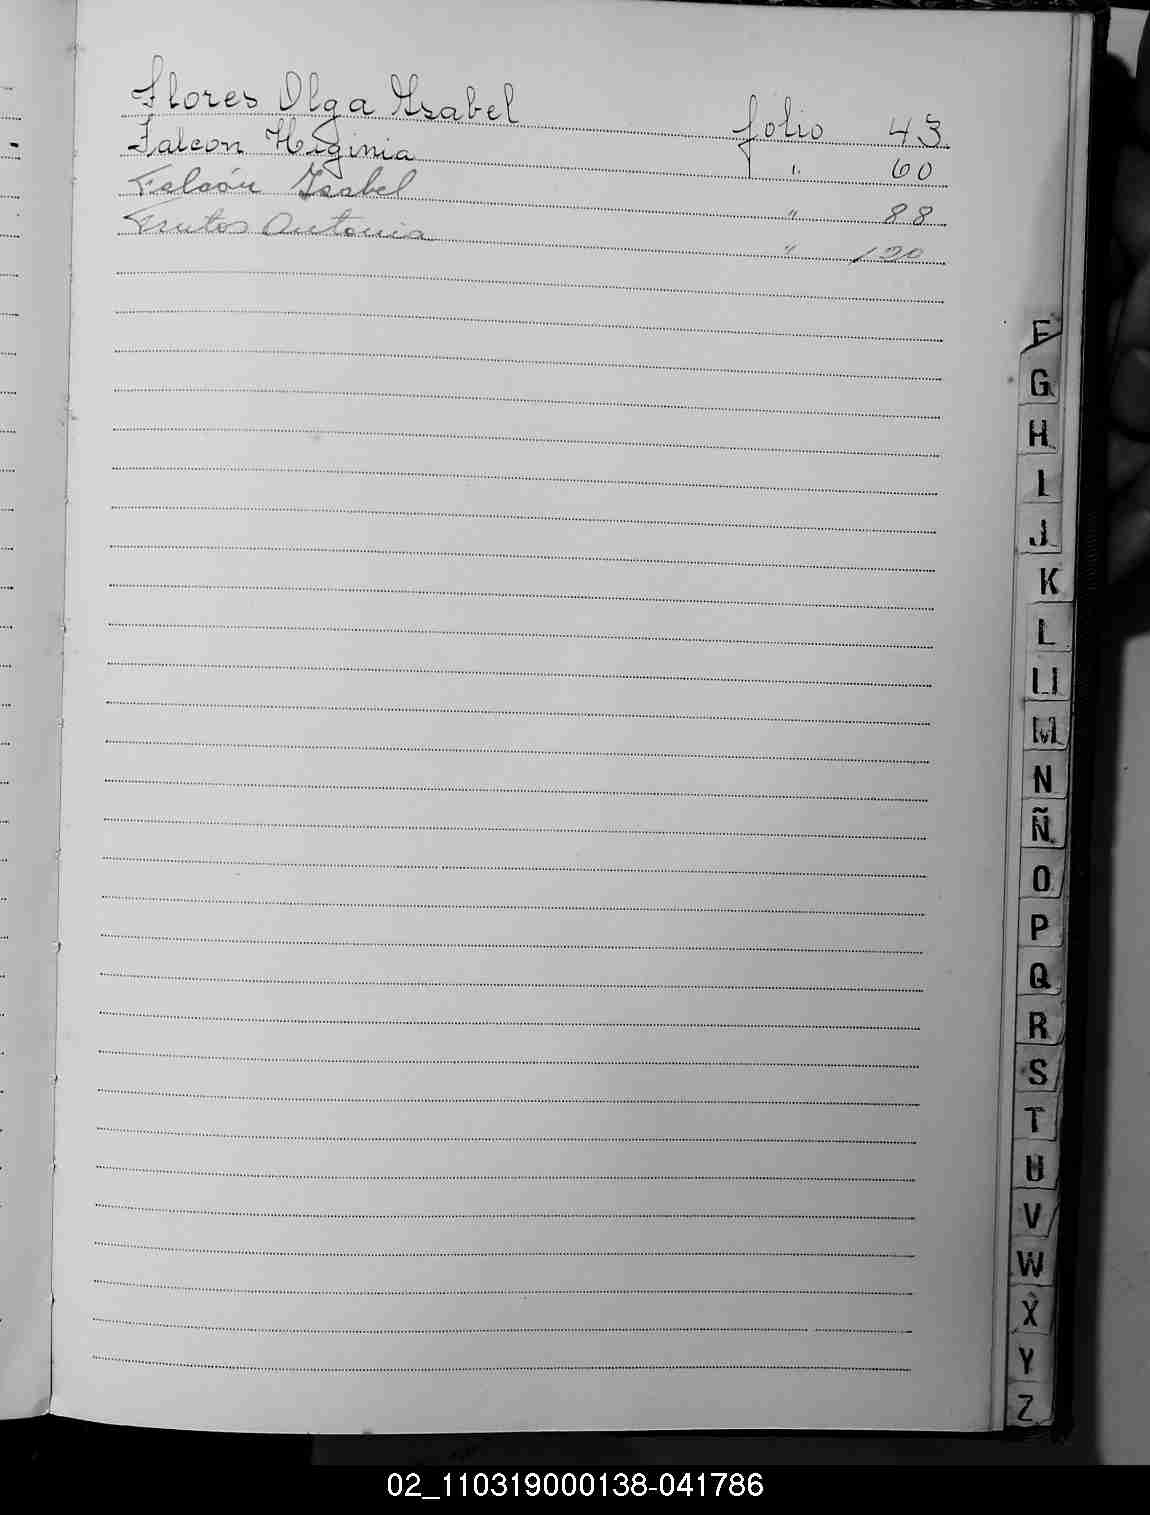 Flores Olga Ysabel folio 43
Falcon Higinia " 60
Falcón Isabel " 88
Frutos Antonia " 120
F
G
H
I
J
K
L
Ll
M
N
Ñ
O
P
Q
R
S
T
U
V
W
X
Y
Z
02_110319000138-041786